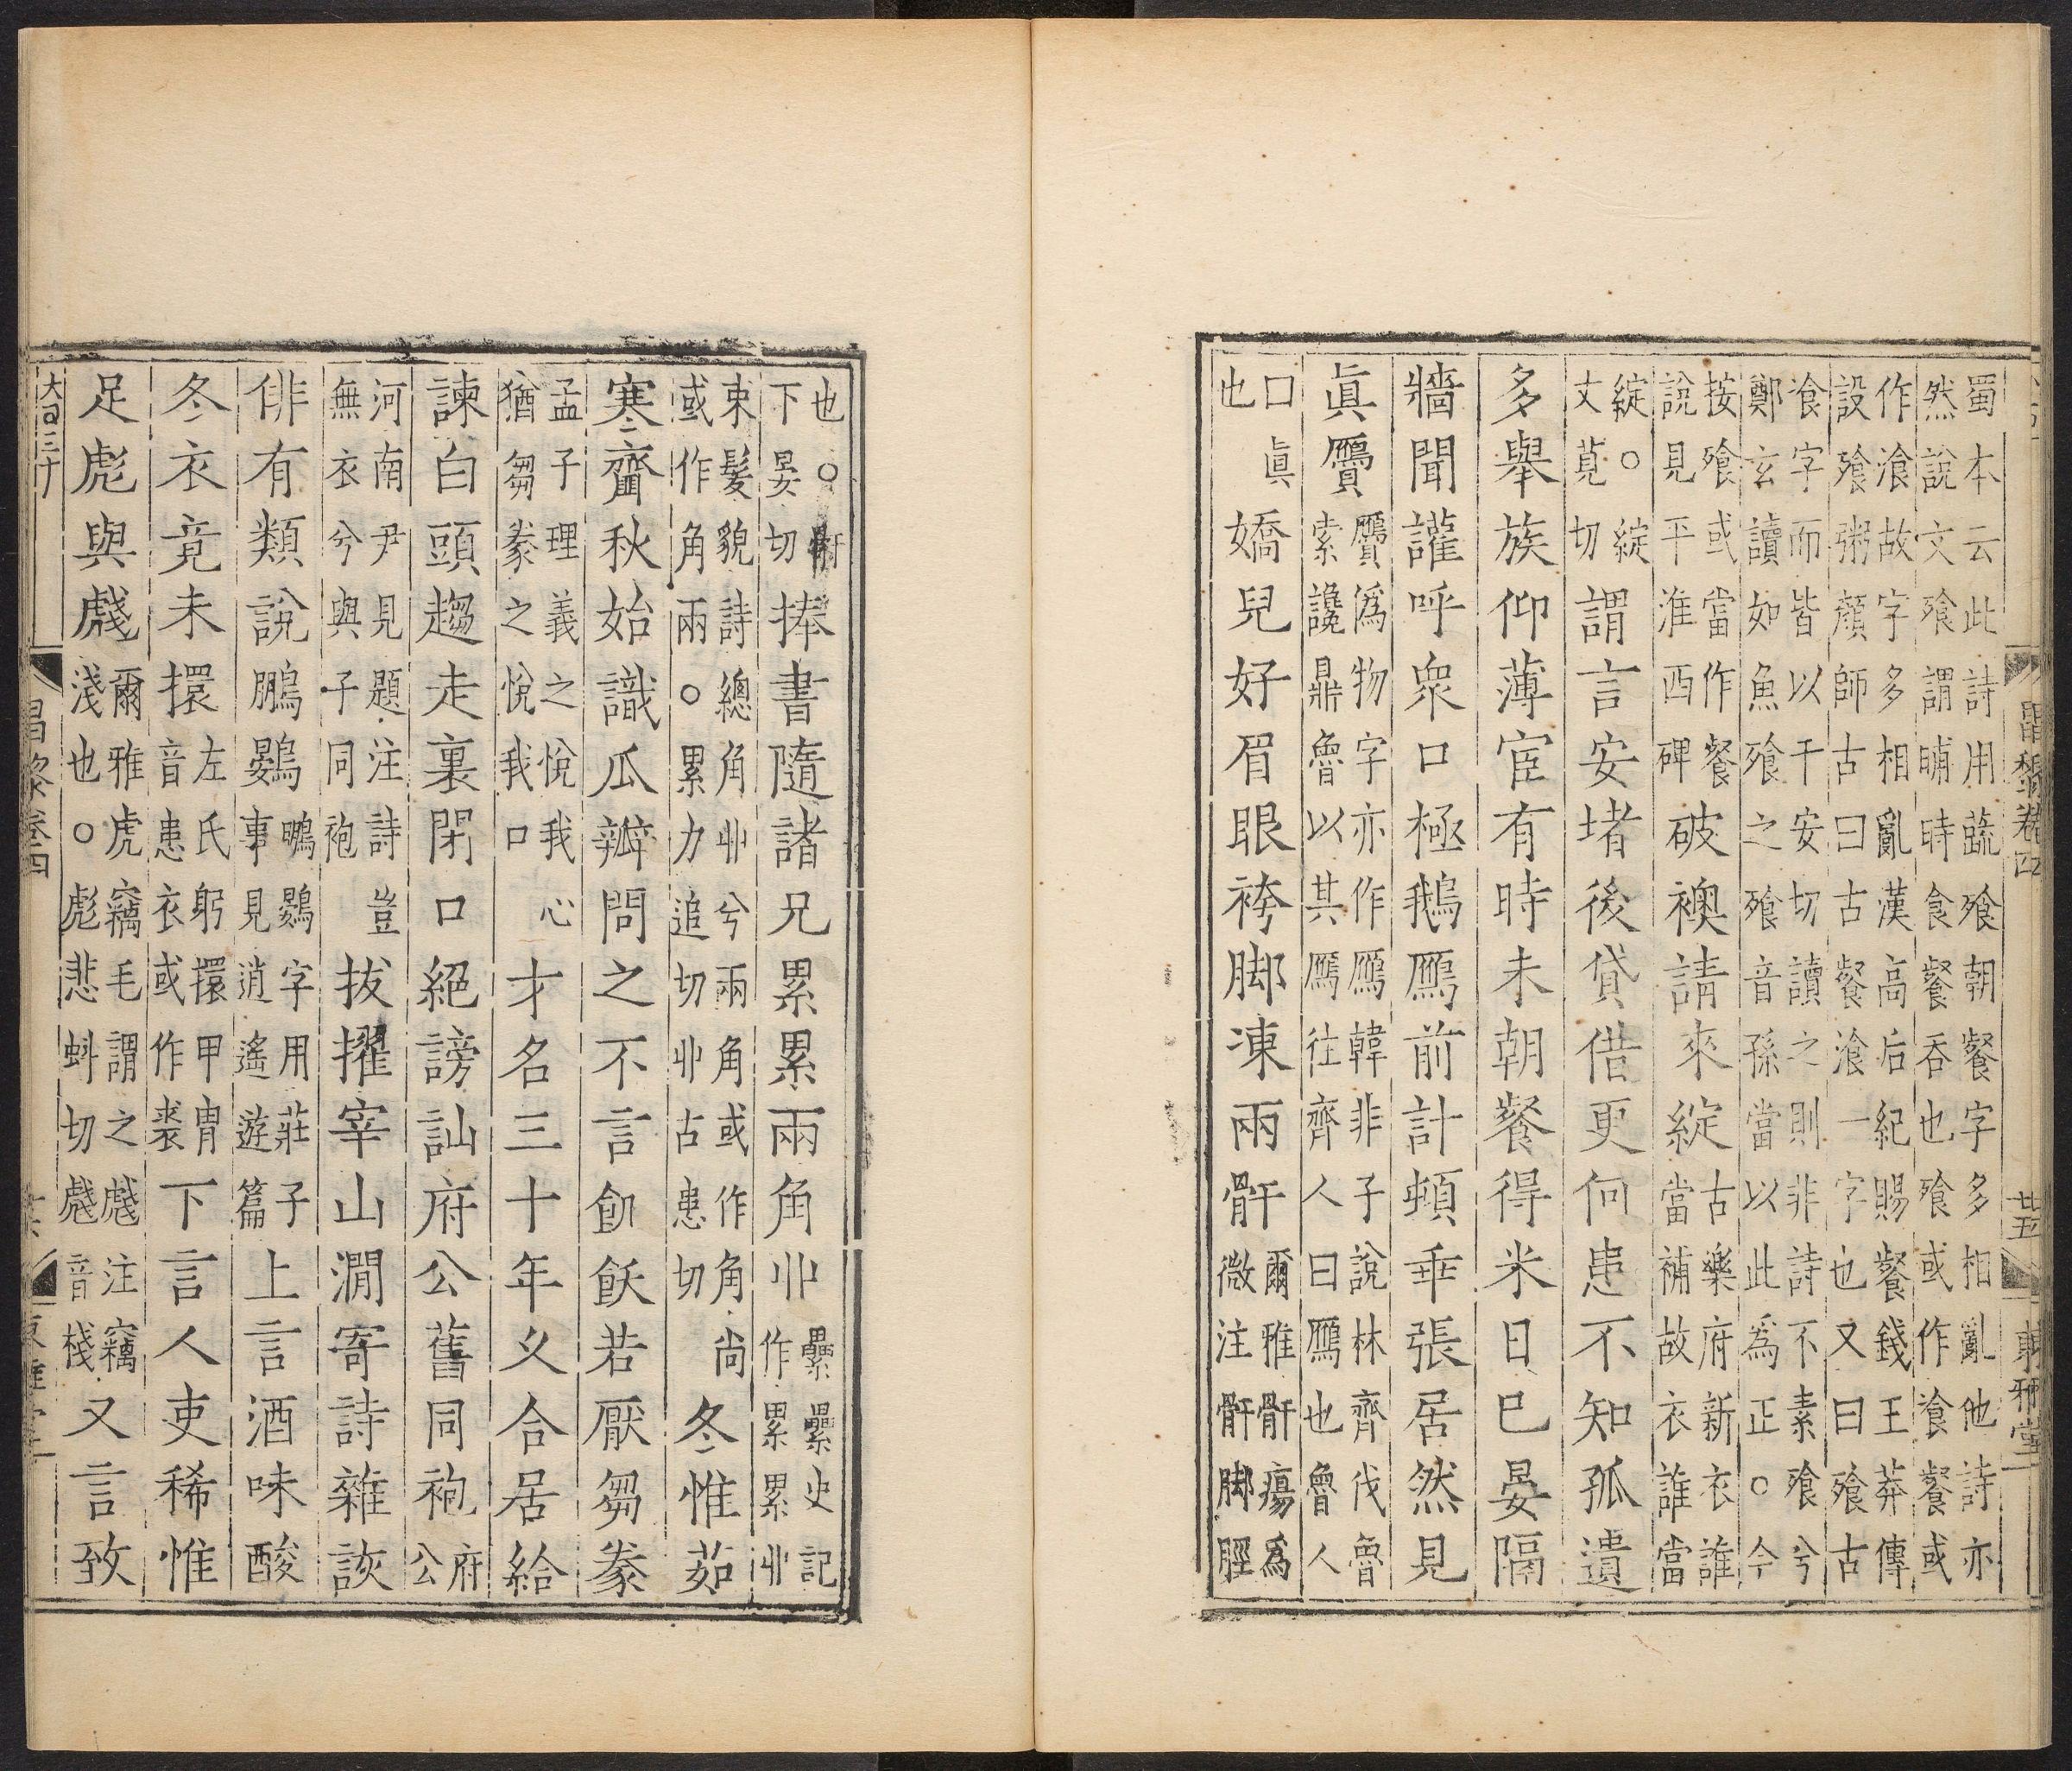 蜀本云此詩用蔬飱朝餐字多相亂他詩亦
然說文飱謂晡時食餐吞也飱或作飡餐或
作飡故字多相亂漢高后紀賜餐錢王莽傳
設飱粥顏師古曰古餐飡一字也又曰飱古
飡字而皆以干安切讀之則非詩不素飱兮
鄭玄讀如魚飱之飱音孫當以此爲正○今
按飱或當作餐
說見平淮西碑破襖請來綻古樂府新衣誰
當補故衣誰當
綻○綻
丈莧切謂言安堵後貸借更何患不知孤遺
多舉族仰薄宦有時未朝餐得米日已晏隔
牆聞讙呼衆口極鵝鴈前計頓乖張居然見
眞贋贋僞物字亦作鴈韓非子說林齊伐魯
索讒鼎魯以其鴈往齊人曰鴈也魯人
口眞
也嬌兒好眉眼袴脚凍兩骭爾雅骭瘍爲
微注骭脚脛
昌黎卷四
廿五
東雅堂
也○骭
下晏切捧書隨諸兄累累兩角丱纍纍史記
作累累丱
束髮貌詩總角丱兮兩角或作角尚
或作角兩○累力追切丱古患切冬惟茹
寒虀秋始識瓜瓣問之不言飢飫若厭芻豢
孟子理義之悅我心
猶芻豢之悅我口才名三十年乂合居給
諫白頭趨走裏閉口絕謗訕府公舊同袍府
公
河南尹見題注詩豈
無衣兮與子同袍拔擢宰山澗寄詩雜詼
俳有類說鵬鷃鴳鷃字用莊子
事見逍遙遊篇上言酒味酸
冬衣竟未擐左氏躬擐甲胄
音患衣或作裘下言人吏稀惟
足彪與虥爾雅虎竊毛謂之虥注竊
淺也○彪悲蚪切虥音棧又言致
大昌三十
昌黎卷四
東雅堂